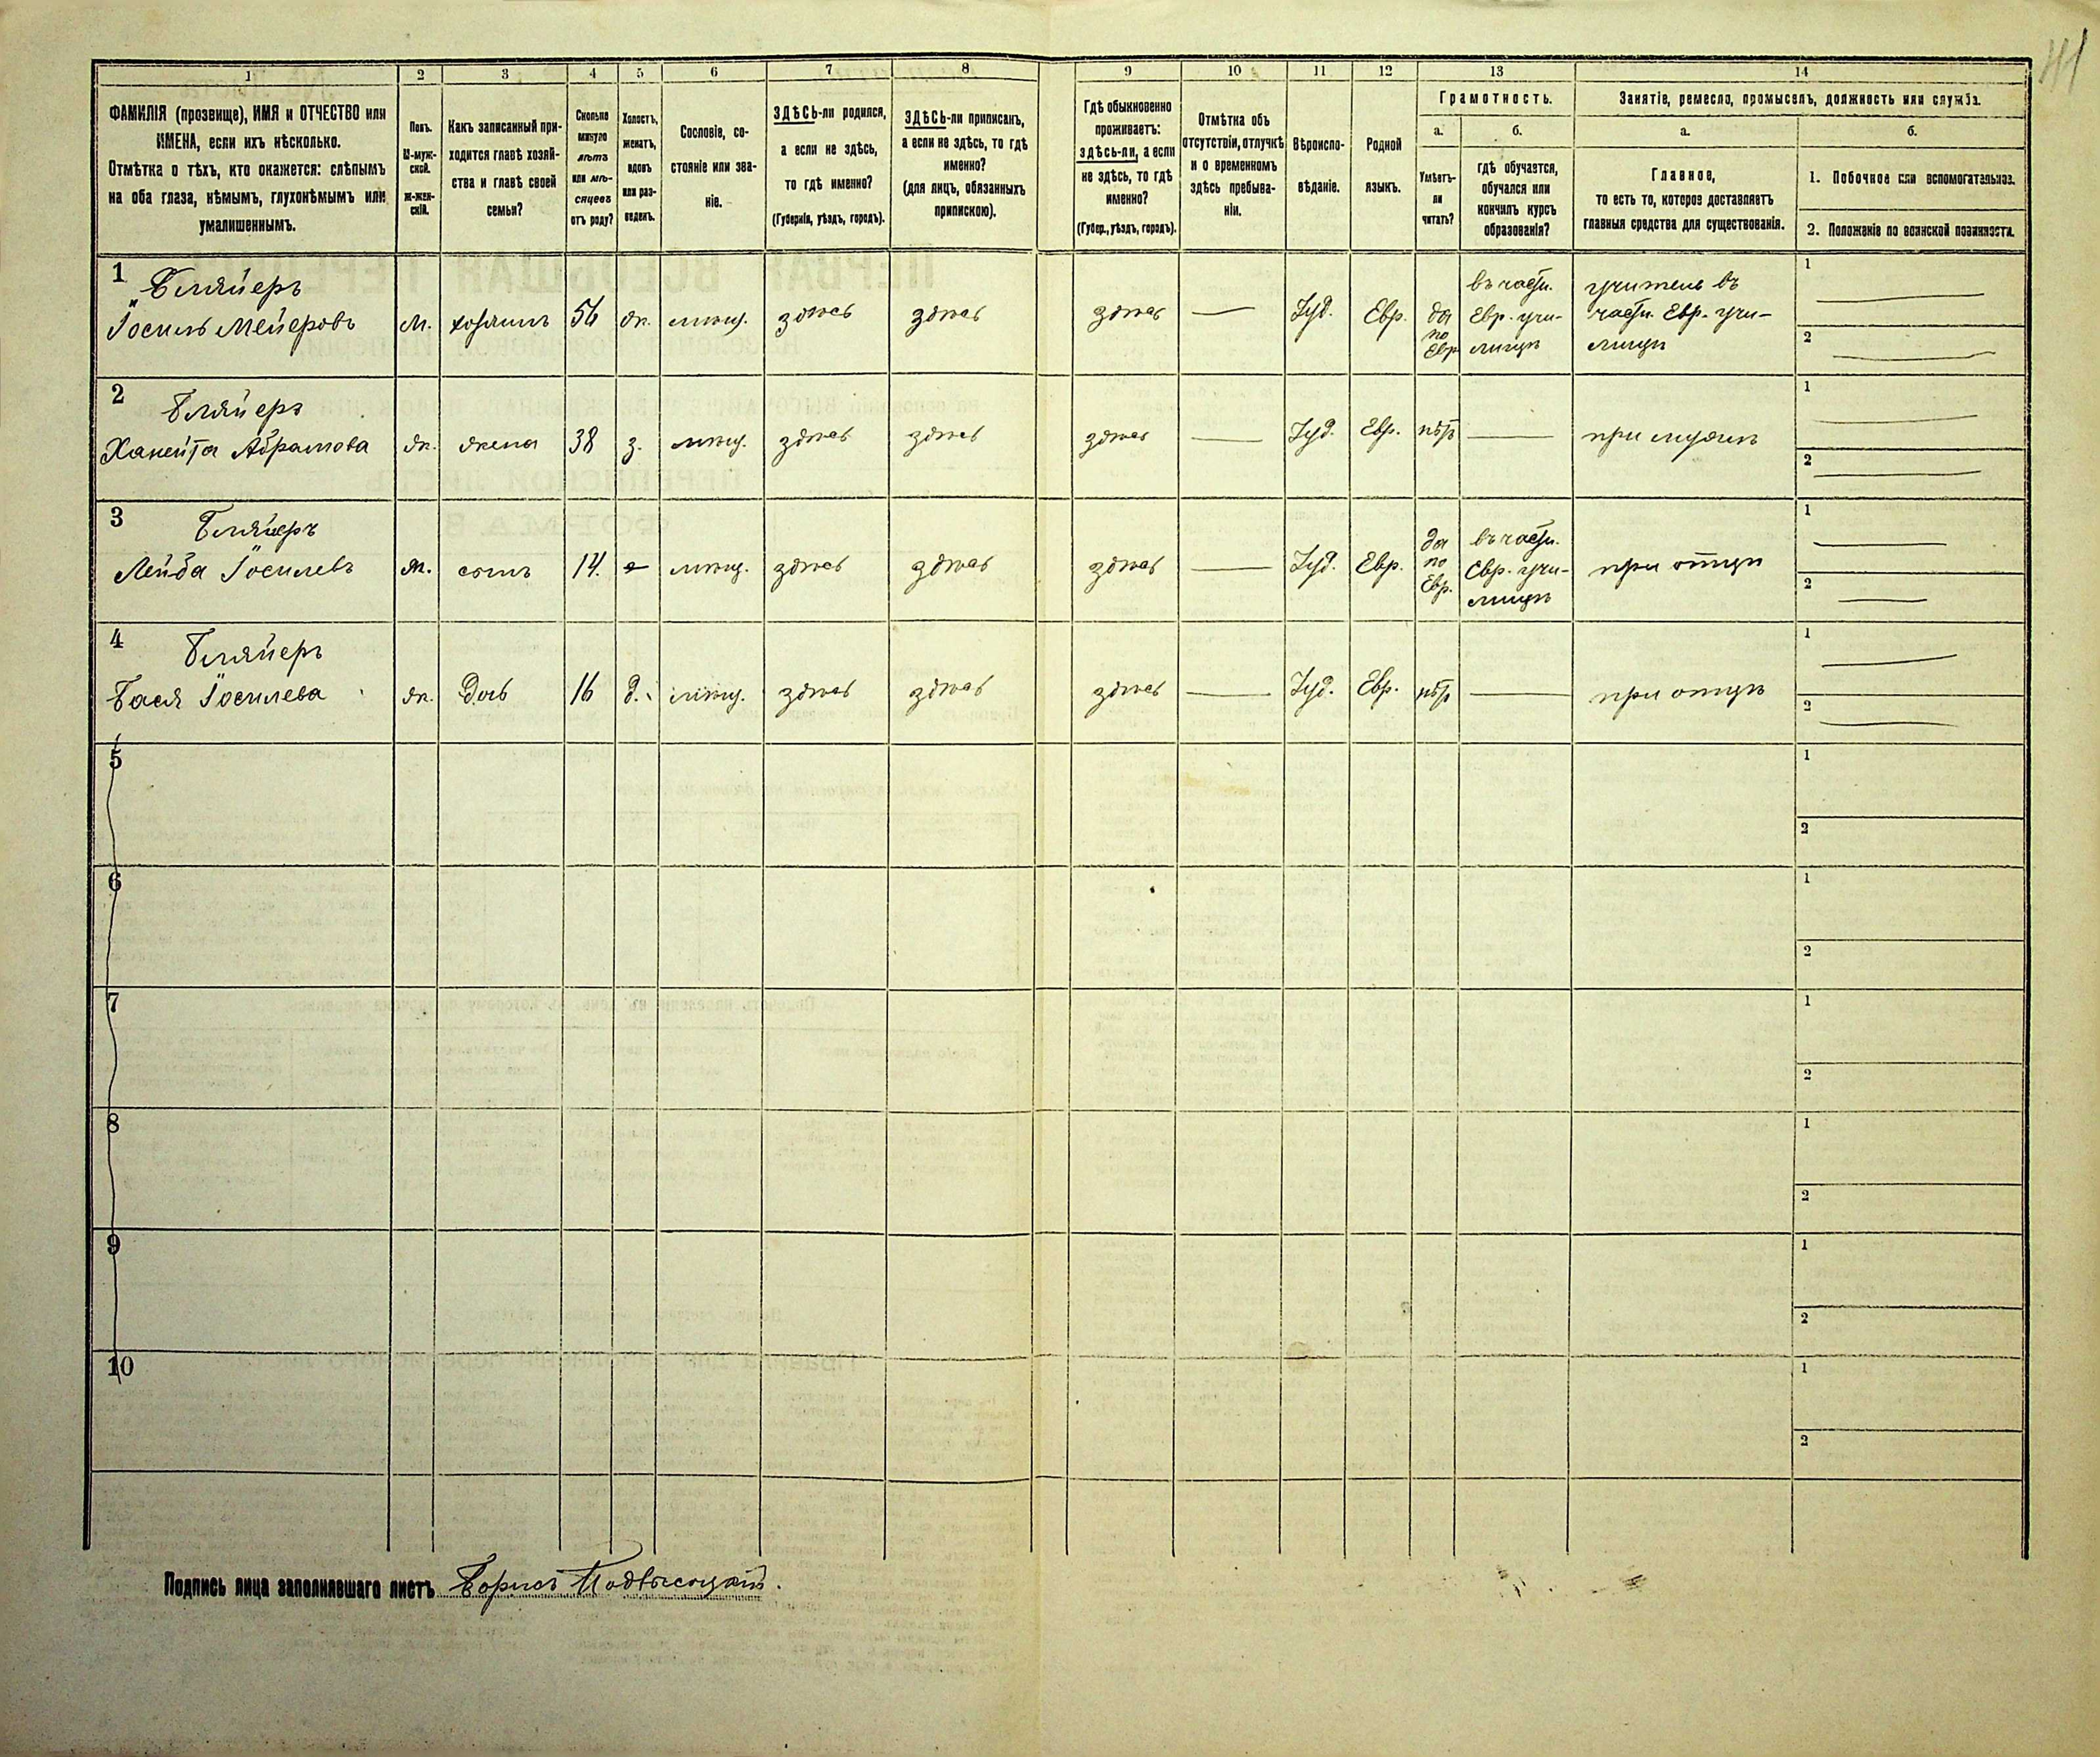 41
1 2 3 4 5 6 7 8 9 10 11 12 13 14
ФАМИЛІЯ (прозвище), ИМЯ и ОТЧЕСТВО или
ИМЕНА, если ихъ нѣсколько.
Отмѣтка о тѣхъ, кто окажется: слѣпымъ
на оба глаза, нѣмымъ, глухонѣмымъ или
умалишеннымъ.
Полъ.
М-муж-
ской.
Ж-жен-
скій.
Какъ записанный при-
ходится главѣ хозяй-
ства и главѣ своей
семьи?
Сколько
минуло
лѣтъ
или мѣ-
сяцевъ
отъ роду?
Холостъ,
женатъ,
вдовъ
или раз-
веденъ.
Сословіе, со-
стояніе или зва-
ніе.
ЗДѢСЬ-ли родился,
а если не здѣсь,
то гдѣ именно?
(Губернія, уѣздъ, городъ).
ЗДѢСЬ-ли приписанъ,
а если не здѣсь, то гдѣ
именно?
(для лицъ, обязанныхъ
припискою).
Гдѣ обыкновенно
проживаетъ:
здѣсь-ли, а если
не здѣсь, то гдѣ
именно?
(Губер., уѣздъ, городъ).
Отмѣтка объ
отсутствіи, отлучкѣ
и о временномъ
здѣсь пребыва-
ніи.
Вѣроиспо-
вѣданіе.
Родной
языкъ.
Грамотность.
а.
Умѣетъ-
ли
читать?
б.
гдѣ обучается,
обучался или
кончилъ курсъ
образованія?
Занятіе, ремесло, промыселъ, должность или служба.
а.
Главное,
то есть то, которое доставляетъ
главныя средства для существованія.
б.
1. Побочное или вспомогательное.
2. Положеніе по воинской повинности.
1
Бляйеръ
Іосиль Мейеровъ
м.
хозяинъ
56
ж.
мѣщ.
здѣсь
здѣсь
здѣсь
—
Іуд.
Евр.
да
по
Евр.
въ частн.
Евр. учи-
лищѣ
учитель въ
частн. Евр. учи-
лищѣ
1 —
2 —
2
Бляйеръ
Ханейта Абрамова
ж.
жена
38
з.
мѣщ.
здѣсь
здѣсь
здѣсь
—
Іуд.
Евр.
нѣтъ
—
при мужѣ
1 —
2 —
3
Бляйеръ
Лейба Іосилевъ
м.
сынъ
14.
мѣщ.
здѣсь
здѣсь
здѣсь
—
Іуд.
Евр.
да
по
Евр.
въ частн.
Евр. учи-
лищѣ
при отцѣ
1 —
2 —
4
Бляйеръ
Бася Іосилева
ж.
дочь
16
д.
мѣщ.
здѣсь
здѣсь
здѣсь
—
Іуд.
Евр.
нѣтъ
—
при отцѣ
1 —
2 —
5
1
2
6
1
2
7
1
2
8
1
2
9
1
2
10
1
2
Подпись лица заполнявшаго листъ Борисъ Подвысоцкій.